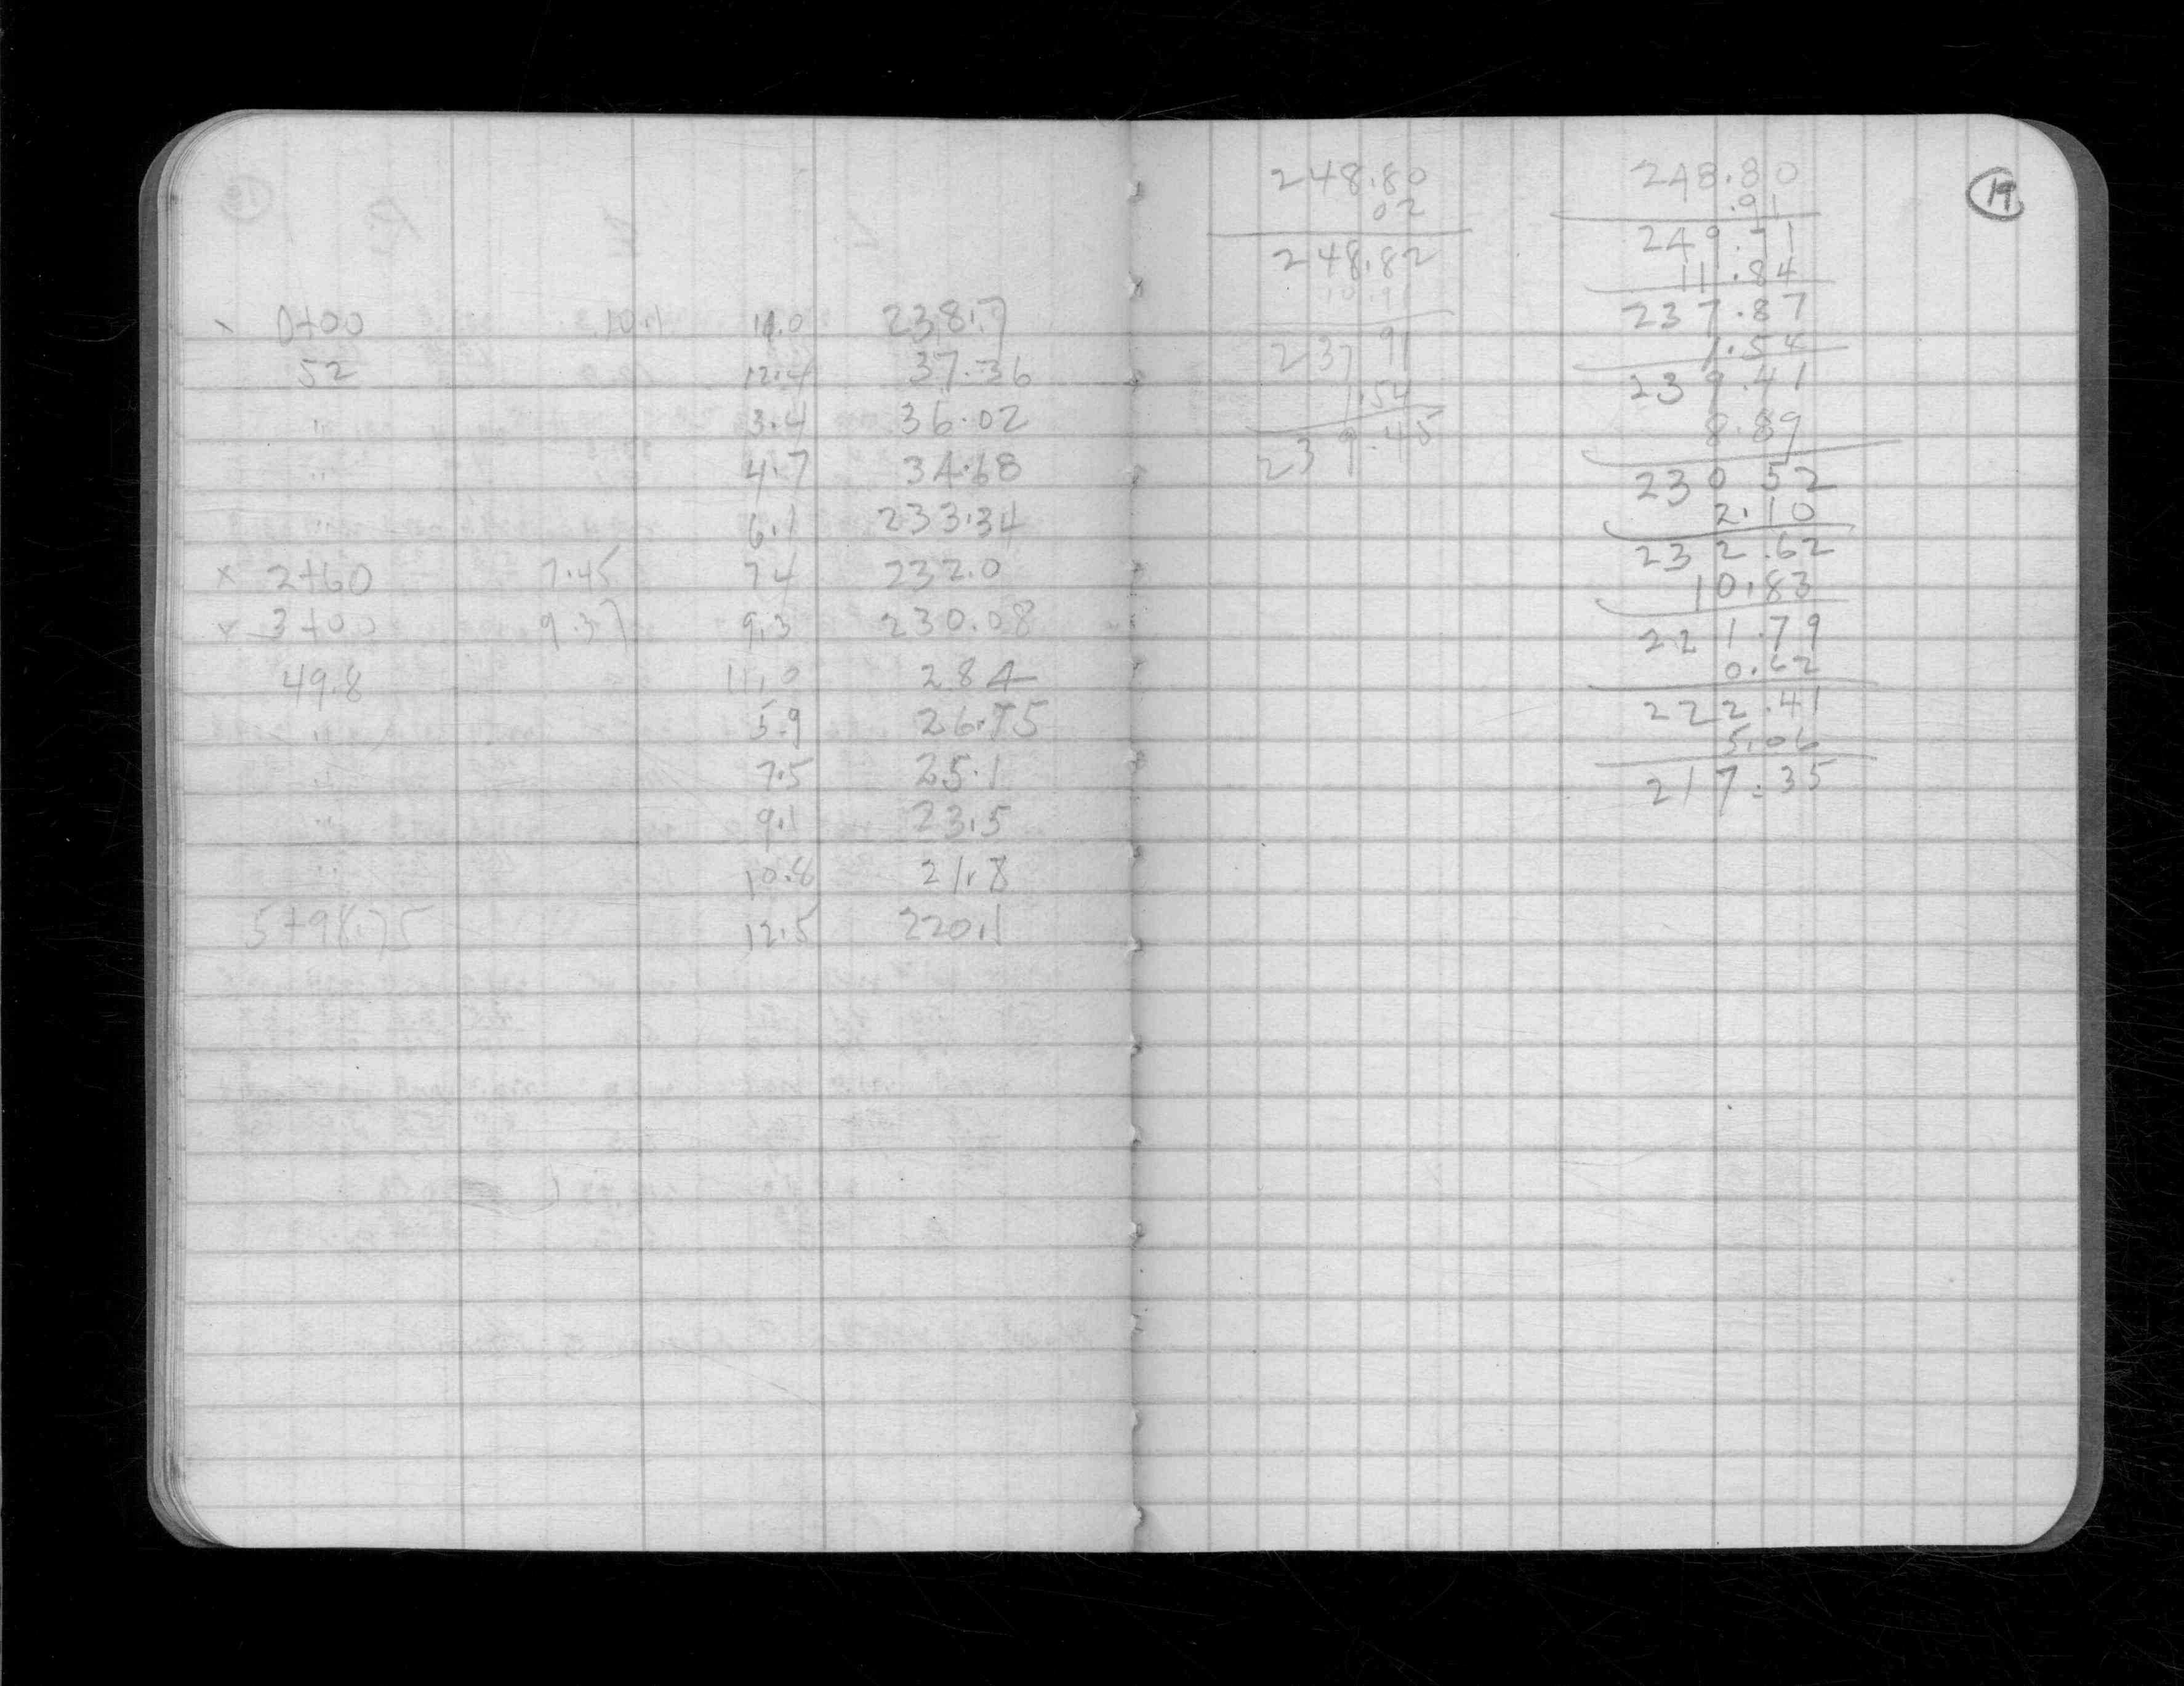 0+00 10.1 11.0 238.7
52 12.4 37.36
" 3.4 36.02
" 4.7 34.68
" 6.1 233.34
x 2+60 7.45 7.4 232.0
x 3+00 9.37 9.3 230.08
49.8 11.0 28.4
" 5.9 26.75
" 7.5 25.1
" 9.1 23.5
" 10.8 21.8
5+98.75 12.5 220.1
248.80
02
248.82
10.91
237 91
1.54
239.45
19
248.80
.91
249.71
11.84
237.87
1.54
239.41
8.89
230 52
2.10
232.62
10.83
221.79
0.62
222.41
5.06
217.35